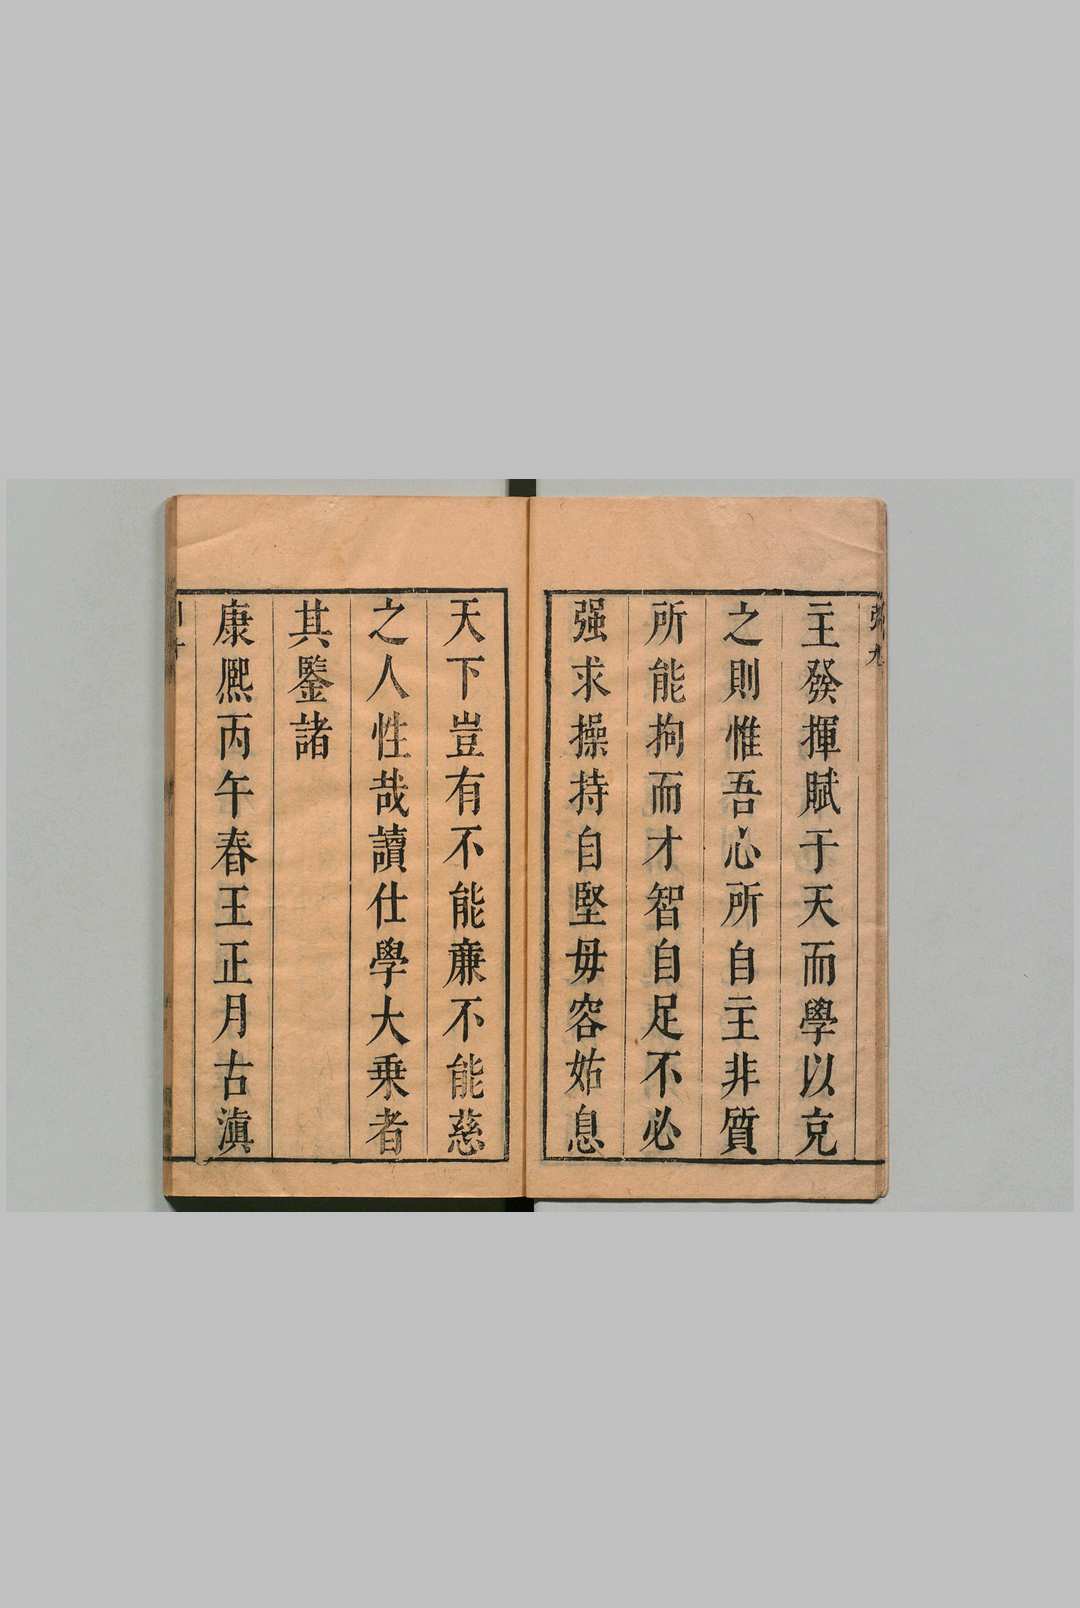 主發揮賦于天而學以克
之則惟吾心所自主非質
所能拘而才智自足不必
强求操持自堅毋容姑息
天下豈有不能廉不能慈
之人性哉讀仕學大乗者
其鑒諸
康熈丙午春王正月古滇